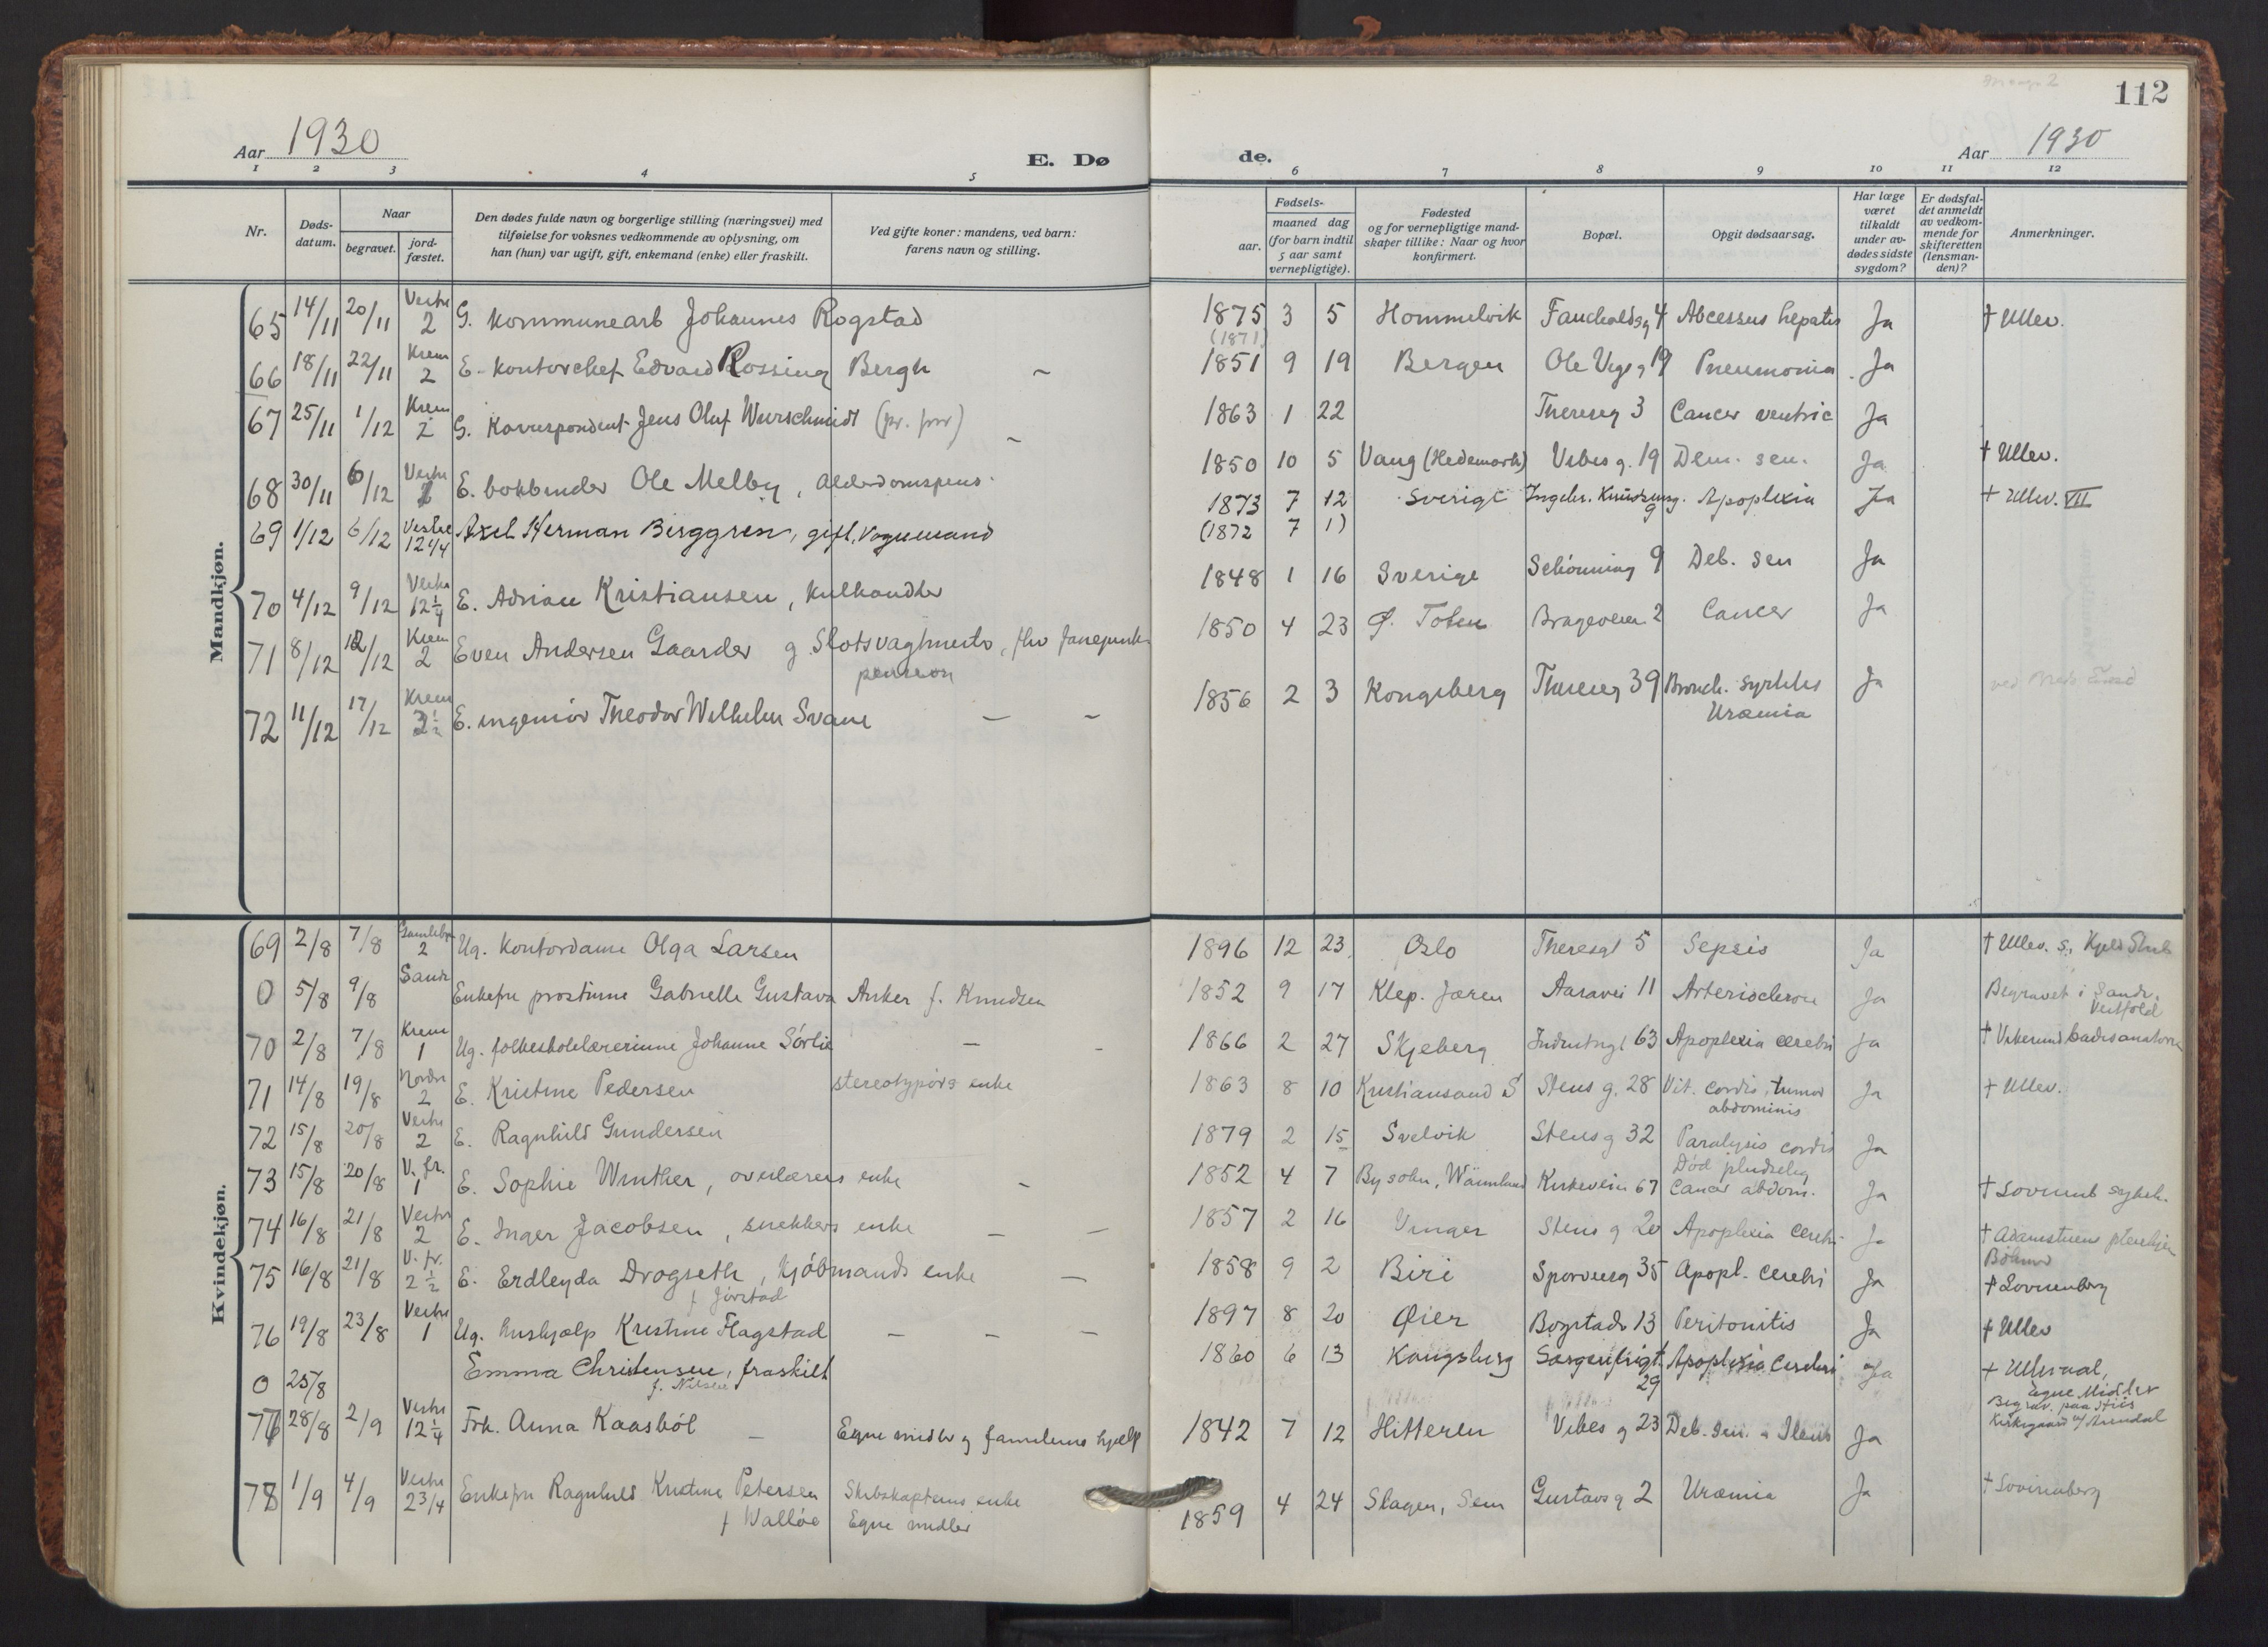 112
Aar 1930 E. Dø de. Aar 1930
1 2 3 4 5 6 7 8 9 10 11 12
Nr.
Døds-
datum.
Naar
begravet.
jord-
fæstet.
Den dødes fulde navn og borgerlige stilling (næringsvei) med
tilføielse for voksnes vedkommende av oplysning, om
han (hun) var ugift, gift, enkemand (enke) eller fraskilt.
Ved gifte koner: mandens, ved barn:
farens navn og stilling.
Fødsels-
aar.
maaned dag
(for barn indtil
5 aar samt
vernepligtige).
Fødested
og for vernepligtige mand-
skaper tillike: Naar og hvor
konfirmert.
Bopæl.
Opgit dødsaarsag.
Har læge
været
tilkaldt
under av-
dødes sidste
sygdom?
Er dødsfal-
det anmeldt
av vedkom-
mende for
skifteretten
(lensman-
den)?
Anmerkninger.
Mandkjøn.
65 14/11 20/11 Vestre 2 G. Kommunearb Johannes Rogstad 1875 3 5 Hommelvik Faucholdsg 4 Abcessus hepatis Ja † Ullev.
(1871)
66 18/11 22/11 Krem 2 E. Kontorchef Edvard Rossing Bergh 1851 9 19 Bergen Ole Vigs g 19 Pneumonia Ja
67 25/11 1/12 Krem 2 G. Korrespondent Jens Oluf Wurschmidt 1863 1 22 Theresg 3 Cancer ventric Ja
68 30/11 6/12 Vestre E. bokbinder Ole Melby, Alderdomspens. 1850 10 5 Vang (Hedemark) Vibes g. 19 Dem. sen. Ja † Ullev.
69 1/12 6/12 Vestre 12 1/4 Axel Herman Berggren, gift, Vognmand 1873 7 12 Sverige Ingebr. Knudsens g. 9 Apoplexia Ja † Ullev. VII
(1872 7 1)
70 4/12 9/12 Vestre 12 1/4 E. Adrian Kristiansen, Kulhandler 1848 1 16 Sverige Schønning 9 Deb. sen Ja
71 8/12 12/12 Krem 2 Even Andersen Gaarder g Slotsvagtmester, 1850 4 23 Ø. Toten Brageveien 2 Cancer Ja
pension
72 11/12 17/12 Krem E. ingeniør Theodor Wilhelm Svane 1856 2 3 Kongsberg Theresg 39 Bronch. Ja
Uræmia
Kvindekjøn.
69 2/8 7/8 Gamleby 2 Ug. Kontordame Olga Larsen 1896 12 23 Oslo Theresgt 5 Sepsis Ja † Ullev. s. Kjeld Stub
0 5/8 9/8 Sande Enkefru prostinne Gabrielle Gustava Anker f. Knudsen 1852 9 17 Klep. Jæren Aasavei 11 Arteriosclerose Ja Begravet i Sande.
Vestfold
70 2/8 7/8 Krem 1 Ug. folkeskolelærerinne Johanne Sørlie 1866 2 27 Skjeberg Industrigt 63 Apoplexia cerebri Ja
71 14/8 19/8 Nordre 2 E. Kristine Pedersen stereotypørs enke 1863 8 10 Kristiansand S Stens g. 28 Vit. cordis, tumor Ja † Ullev.
abdominis
72 15/8 20/8 Vestre 2 E. Ragnhild Gundersen 1879 2 15 Svelvik Stens g 32 Paralysis cordis Ja
Død pludselig
73 15/8 20/8 V. fr. 1 E. Sophie Winther, overlærers enke 1852 4 7 By sokn, Wärmland Kirkeveien 67 Cancer abdom. Ja † Lovisenb sykeh.
74 16/8 21/8 Vestre 2 E. Inger Jacobsen, snekkers enke 1857 2 16 Vinger Stens g 20 Apoplexia cerebri Ja † Adamstuens pleiehjem
75 16/8 21/8 V. fr. 2 1/2 E. Erdleyda Drogseth, Kjøbmands enke 1858 9 2 Biri Sporveisg 35 Apopl. cerebri Ja † Lovisenberg
f Jørstad
76 19/8 23/8 Vestre 1 Ug. hushjælp Kristine Flagstad 1897 8 20 Øier Bogstadv 13 Peritonitis Ja † Ullev
0 25/8 Emma Christensen, fraskilt 1860 6 13 Kongsberg Sorgenfrigt. 29 Apoplexia cerebri Ja † Ulleraal,
f. Nilsen Egne Midler
Begrav. paa
Kirkegaard v/ Arendal
77 28/8 2/9 Vestre 12 1/4 Frk. Anna Kaasbøl Egne midler og familiens hjælp 1842 7 12 Hitteren Vibes g 23 Deb. sen. Ja
78 1/9 4/9 Vestre 2 3/4 Enkefru Ragnhild Kristine Petersen Skibskapteins enke 1859 4 24 Slagen, Sem Gustavs g 2 Uræmia Ja † Lovisenberg
f Walløe Egne midler